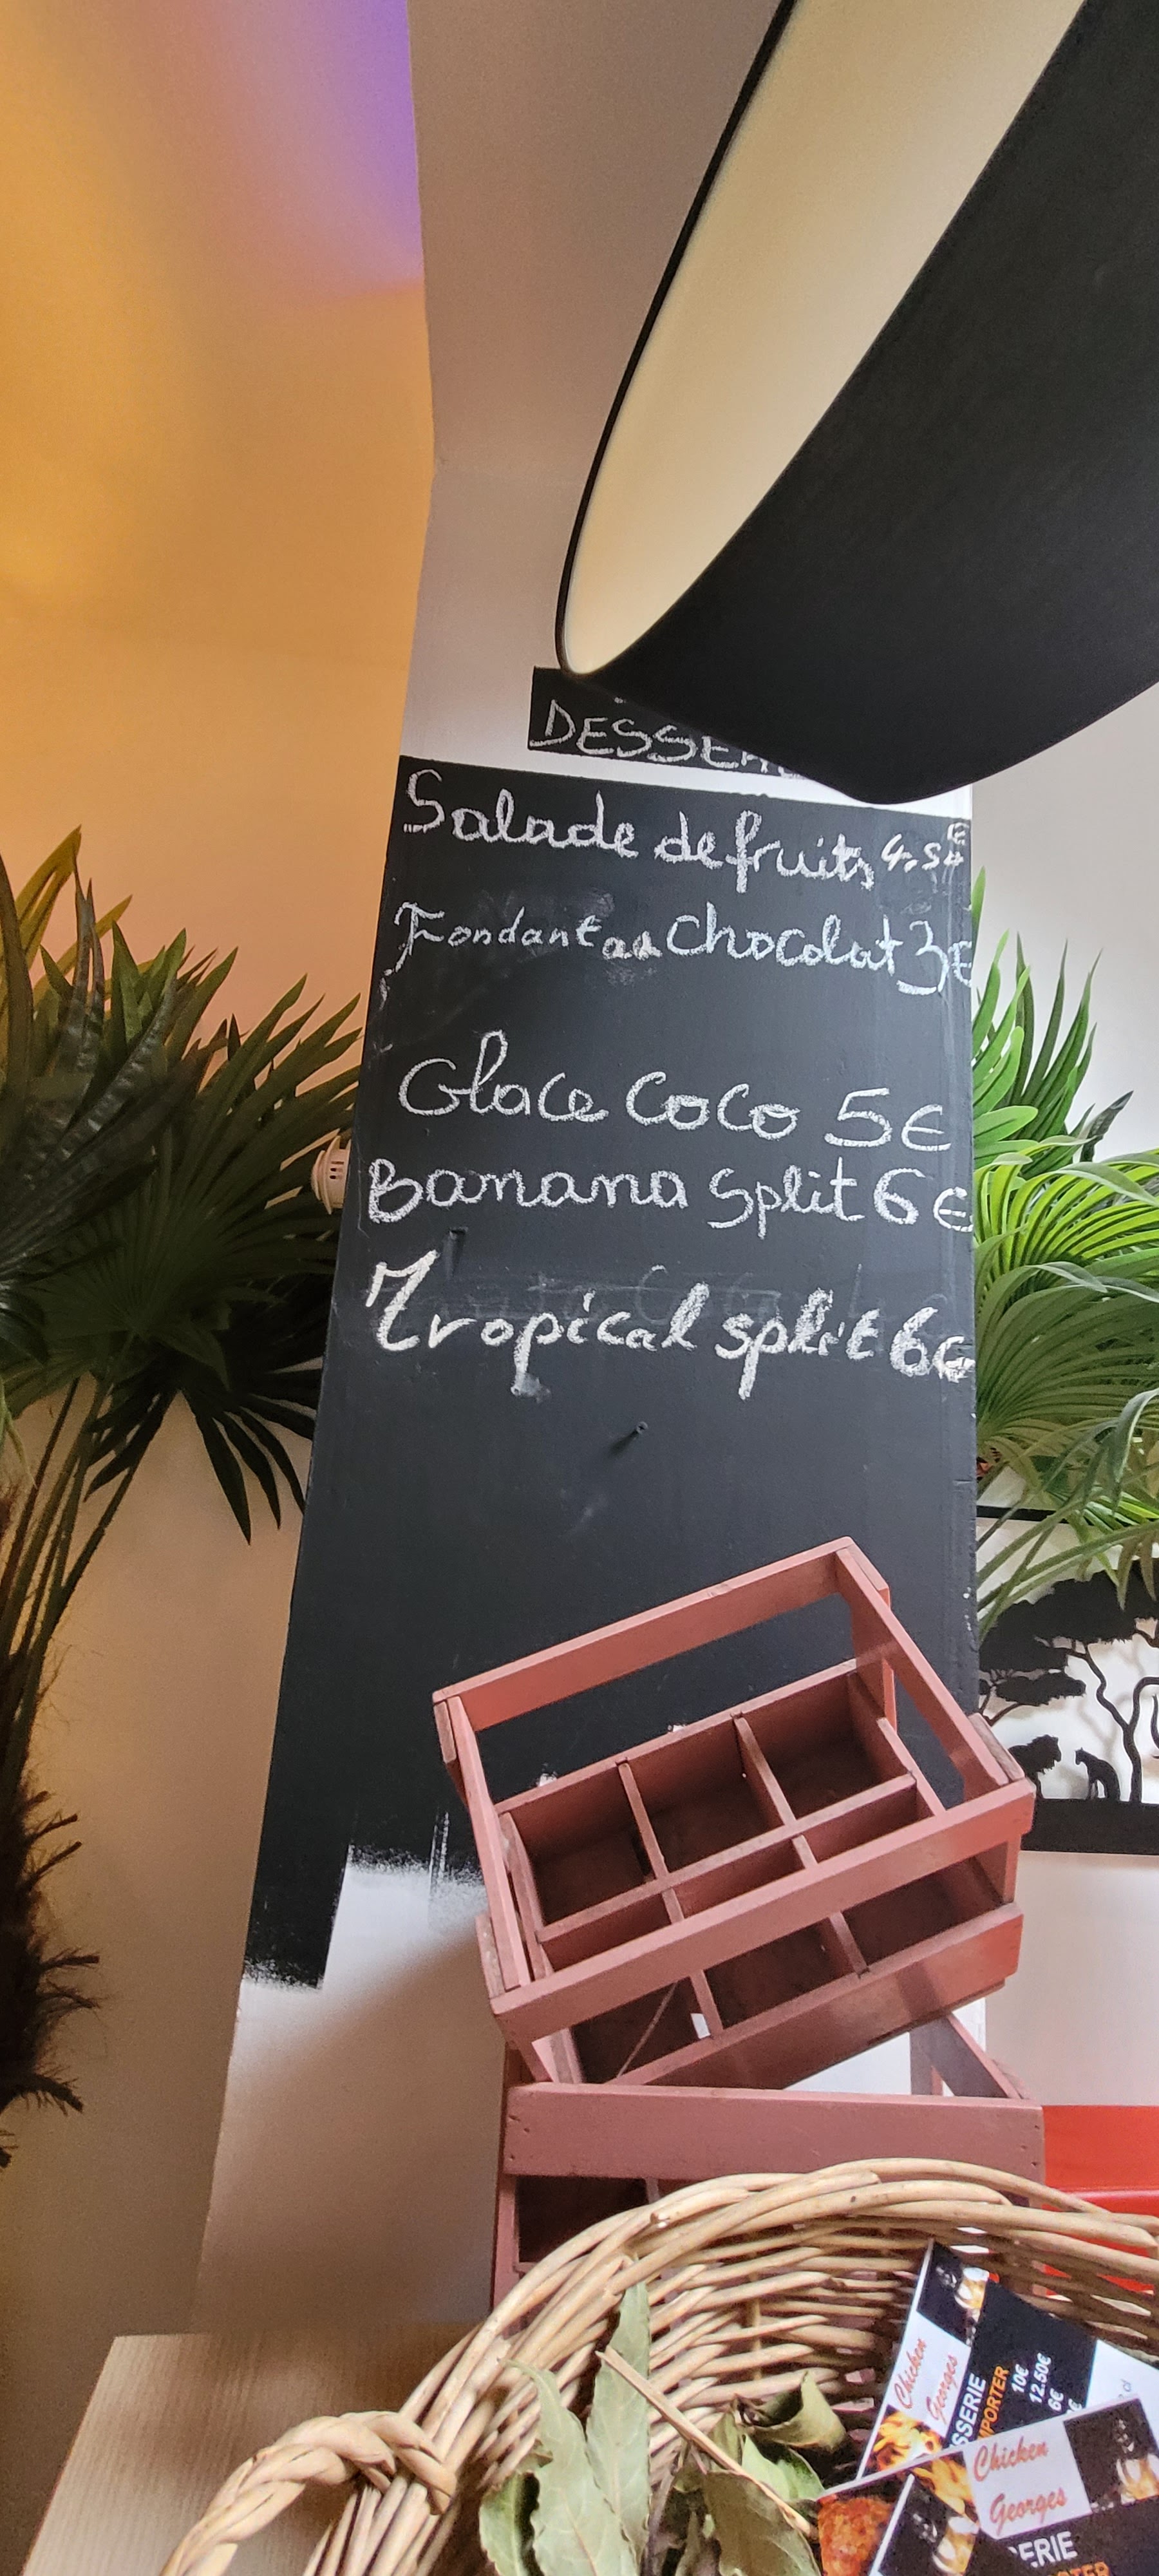 DESSERT
Salade de fruits
Fondant au Chocolat 3€
Glace Coco 5€
Banana Split 6€
Tropical split 6€
Chicken
Georges
SSERIE
PORTER
10€
12.50€
6€
Chicken
Georges
ERIE
PORTER